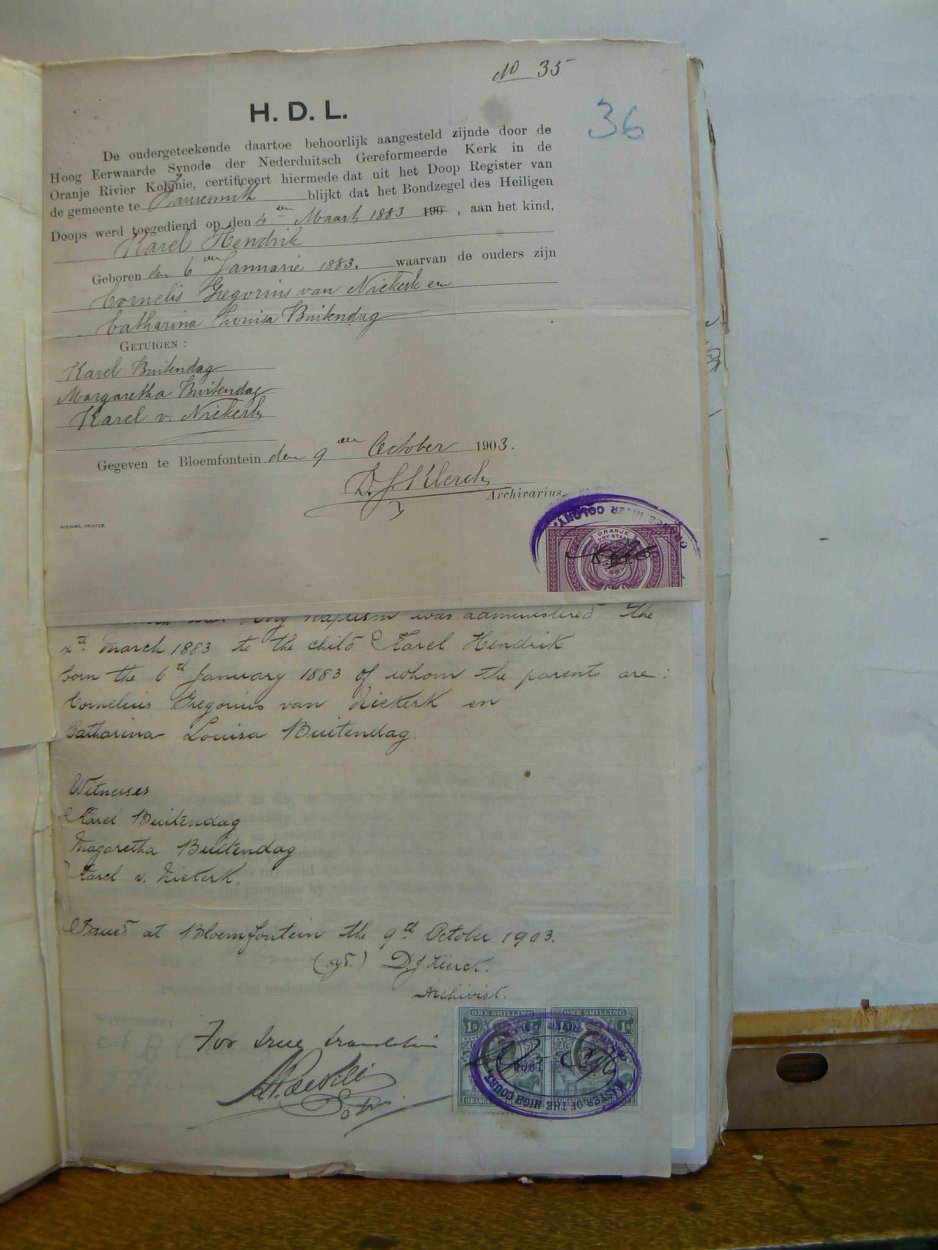 No 35
36
H. D. L.
De ondergeteekende daartoe behoorlijk aangesteld zijnde door de
Hoog Eerwaarde Synode der Nederduitsch Gereformeerde Kerk in de
Oranje Rivier Kolonie, certificeert hiermede dat uit het Doop Register van
de gemeente te Harrismith blijkt dat het Bondzegel des Heiligen
Doops werd toegediend op den 4en Maart 1883 190 , aan het kind,
Karel Hendrik
Geboren den 6en Januarie 1883. waarvan de ouders zijn
Cornelis Gregorius van Niekerk en
Catharina Louisa Buitendag
GETUIGEN :
Karel Buitendag
Margaretha Buitendag
Karel v. Niekerk
Gegeven te Bloemfontein den 9en October 1903.
D. J. Klerck
Archivarius.
ORANGE RIVER COLONY
ORANJE
Holy Baptism was administered the
March 1883 to the child Karel Hendrik
born the 6th January 1883 of whom the parents are :
Cornelius Gregorius van Niekerk en
Catharina Louisa Buitendag.
Witnesses
Karel Buitendag
Magaretha Buitendag
Karel v. Niekerk.
Issued at Bloemfontein the 9th October 1903.
(sgd.) D J Klerck.
Archivist.
For true translation
ONE SHILLING ONE SHILLING
OF THE HIGH COURT